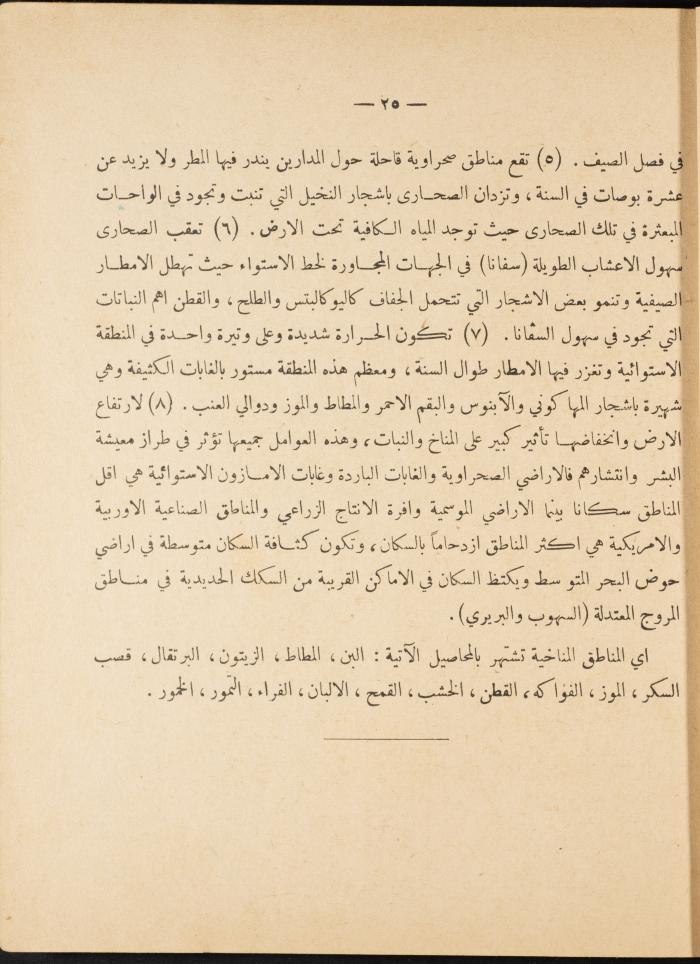 — ٢٥ —
في فصل الصيف . (٥) تقع مناطق صحراوية قاحلة حول المدارين يندر فيها المطر ولا يزيد عن
عشرة بوصات في السنة ، وتزدان الصحارى باشجار النخيل التي تنبت وتجود في الواحات
المبعثرة في تلك الصحارى حيث توجد المياه الكافية تحت الارض . (٦) تعقب الصحارى
سهول الاعشاب الطويلة (سفانا) في الجهات المجاورة لخط الاستواء حيث تهطل الامطار
الصيفية وتنمو بعض الاشجار التي تتحمل الجفاف كاليوكالبتس والطلح ، والقطن اهم النباتات
التي تجود في سهول السڤانا . (٧) تكون الحرارة شديدة وعلى وتيرة واحدة في المنطقة
الاستوائية وتغزر فيها الامطار طوال السنة ، ومعظم هذه المنطقة مستور بالغابات الكثيفة وهي
شهيرة باشجار المهاكوني والآبنوس والبقم الاحمر والمطاط والموز ودوالي العنب . (٨) لارتفاع
الارض وانخفاضها تأثير كبير على المناخ والنبات ، وهذه العوامل جميعها تؤثر في طراز معيشة
البشر وانتشارهم فالاراضي الصحراوية والغابات الباردة وغابات الامازون الاستوائية هي اقل
المناطق سكانا بينما الاراضي الموسمية وافرة الانتاج الزراعي والمناطق الصناعية الاوربية
والامريكية هي اكثر المناطق ازدحاماً بالسكان ، وتكون كثافة السكان متوسطة في اراضي
حوض البحر المتوسط ويكتظ السكان في الاماكن القريبة من السكك الحديدية في مناطق
المروج المعتدلة (السهوب والبريري) .
اي المناطق المناخية تشتهر بالمحاصيل الآتية : البن ، المطاط ، الزيتون ، البرتقال ، قصب
السكر ، الموز ، الفواكه ، القطن ، الخشب ، القمح ، الالبان ، الفراء ، التمور ، الخمور .